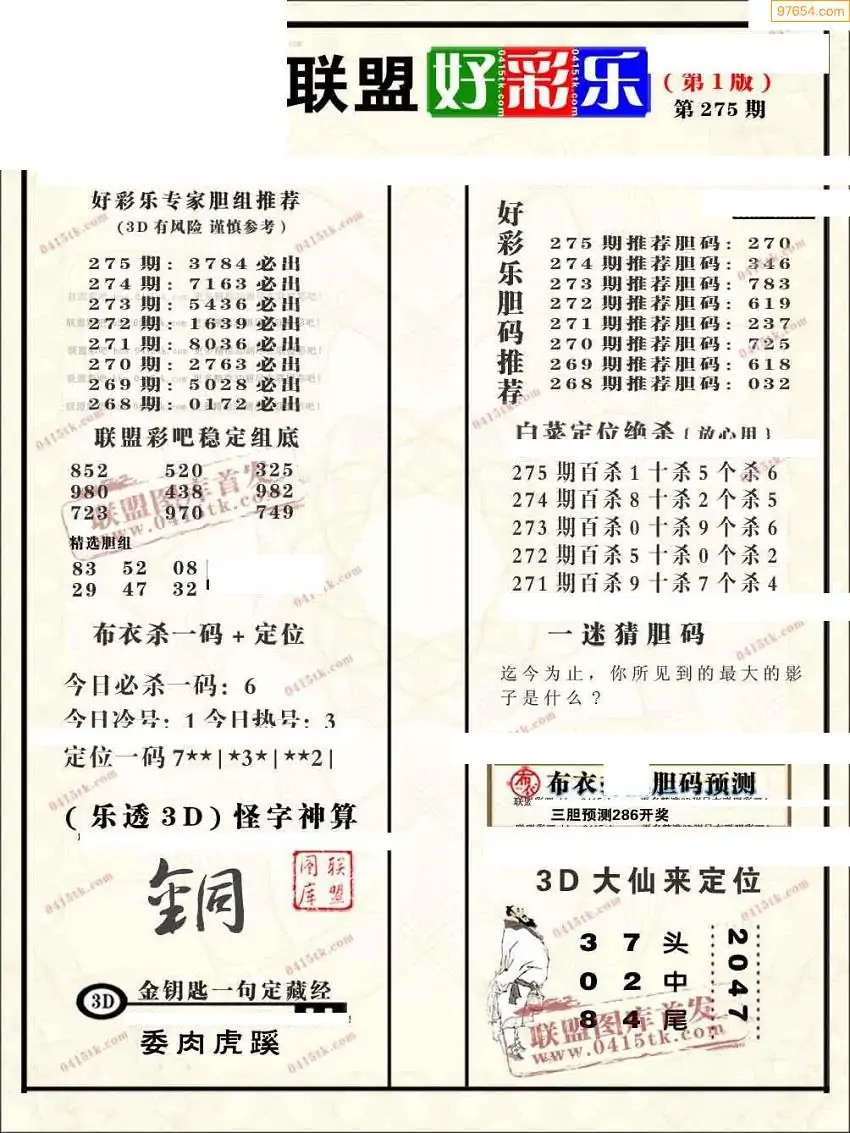 97654.com
联盟好彩乐
(第1版)
第275期
好彩乐专家胆组推荐
(3D有风险 谨慎参考)
275期: 3784必出
274期: 7163必出
273期: 5436必出
272期: 1639必出
271期: 8036必出
270期: 2763必出
269期: 5028必出
268期: 0172必出
联盟彩吧稳定组底
852 520 325
980 438 982
723 970 749
精选胆组
83 52 08
29 47 32
布衣杀一码+定位
今日必杀一码: 6
今日冷号: 1 今日热号: 3
定位一码 7**|*3*|**2|
(乐透3D)怪字神算
銅
联盟图库
3D
金钥匙一句定藏经
委肉虎蹊
好彩乐胆码推荐
275期推荐胆码: 270
274期推荐胆码: 346
273期推荐胆码: 783
272期推荐胆码: 619
271期推荐胆码: 237
270期推荐胆码: 725
269期推荐胆码: 618
268期推荐胆码: 032
白菜定位绝杀{放心用}
275期百杀1十杀5个杀6
274期百杀8十杀2个杀5
273期百杀0十杀9个杀6
272期百杀5十杀0个杀2
271期百杀9十杀7个杀4
一迷猜胆码
迄今为止，你所见到的最大的影
子是什么?
布衣
胆码预测
三胆预测286开奖
3D大仙来定位
3 7 头
0 2 中
8 4 尾
2047
联盟图库首发
www.0415tk.com
0415tk.com